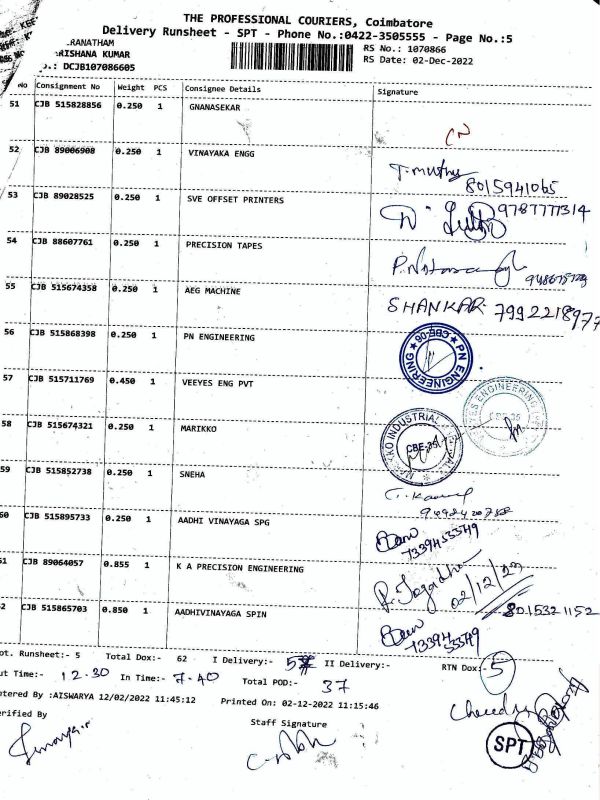 THE PROFESSIONAL COURIERS, Coimbatore
Delivery Runsheet - SPT - Phone No.:0422-3505555 - Page No.:5
RANATHAM
ARISHANA KUMAR
RS No.: 1070866
.: DCJB107086605
RS Date: 02-Dec-2022
No Consignment No Weight PCS Consignee Details Signature
51 CJB 515828856 0.250 1 GNANASEKAR
CN
52 CJB 89006908 0.250 1 VINAYAKA ENGG
T. muthu
8015941065
53 CJB 89028525 0.250 1 SVE OFFSET PRINTERS
9787777314
54 CJB 88607761 0.250 1 PRECISION TAPES
55 CJB 515674358 0.250 1 AEG MACHINE
SHANKAR 7992218977
56 CJB 515868398 0.250 1 PN ENGINEERING
PN ENGINEERING ★ CBE-06 ★
57 CJB 515711769 0.450 1 VEEYES ENG PVT
ENGINEERING
58 CJB 515674321 0.250 1 MARIKKO
MARIKKO INDUSTRIAL
CBE-35
59 CJB 515852738 0.250 1 SNEHA
60 CJB 515895733 0.250 1 AADHI VINAYAGA SPG
7339453349
61 CJB 89064057 0.855 1 K A PRECISION ENGINEERING
02/12/22
8015321152
62 CJB 515865703 0.850 1 AADHIVINAYAGA SPIN
7339453349
ot. Runsheet:- 5 Total Dox:- 62 I Delivery:- 57 II Delivery:- RTN Dox:- 5
ut Time:- 12.30 In Time:- 7-40 Total POD:- 37
ntered By :AISWARYA 12/02/2022 11:45:12 Printed On: 02-12-2022 11:15:46
erified By Staff Signature
SPT